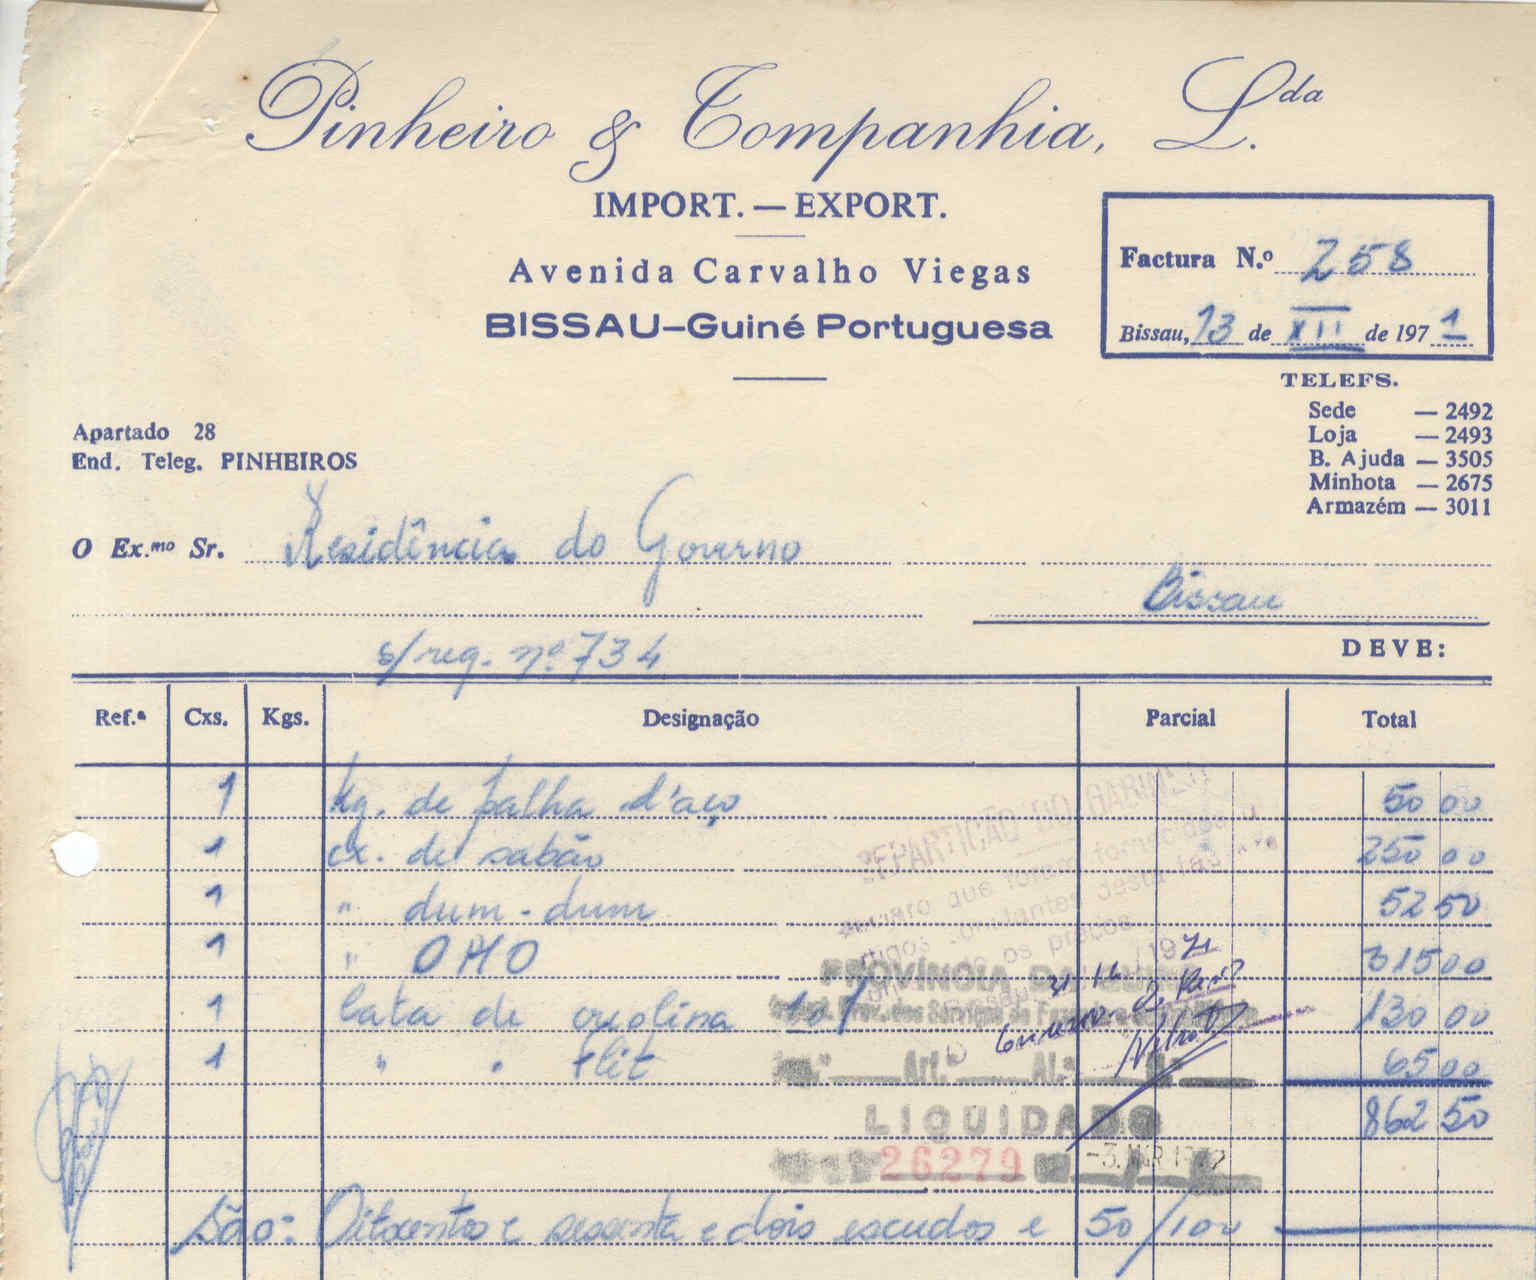 Pinheiro & Companhia, L.da
IMPORT. — EXPORT.
Avenida Carvalho Viegas
BISSAU—Guiné Portuguesa
Factura N.º 258
Bissau, 13 de XII de 1971
TELEFS.
Sede — 2492
Loja — 2493
B. Ajuda — 3505
Minhota — 2675
Armazém — 3011
Apartado 28
End. Teleg. PINHEIROS
O Ex.mo Sr. Residência do Governo
Bissau
s/req. nº 734
DEVE:
Ref.ª Cxs. Kgs. Designação Parcial Total
1 kg. de palha d'aço 50 00
1 cx. de sabão 250 00
1 " dum-dum 52 50
1 " OMO 315 00
1 lata de creolina 130 00
1 " " Flit 65 00
862 50
REPARTIÇÃO DO GABINETE
que foram fornecidos
artigos constantes desta
os preços
/1971
PROVÍNCIA DA
Art.º Al.ª
LIQUIDADO
26279 -3. MAR 1972
São: Oitocentos e sessenta e dois escudos e 50/100